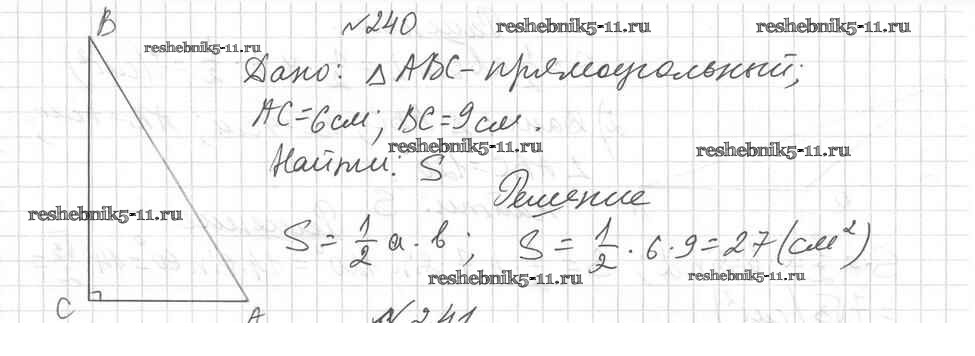 B
№240
reshebnik5-11.ru
reshebnik5-11.ru
reshebnik5-11.ru
Дано: △ABC - прямоугольный;
AC=6см; BC=9см.
reshebnik5-11.ru
reshebnik5-11.ru
Найти: S
Решение
reshebnik5-11.ru
S = 1/2 a · b; S = 1/2 · 6 · 9 = 27 (см²)
reshebnik5-11.ru
reshebnik5-11.ru
C
A
№241